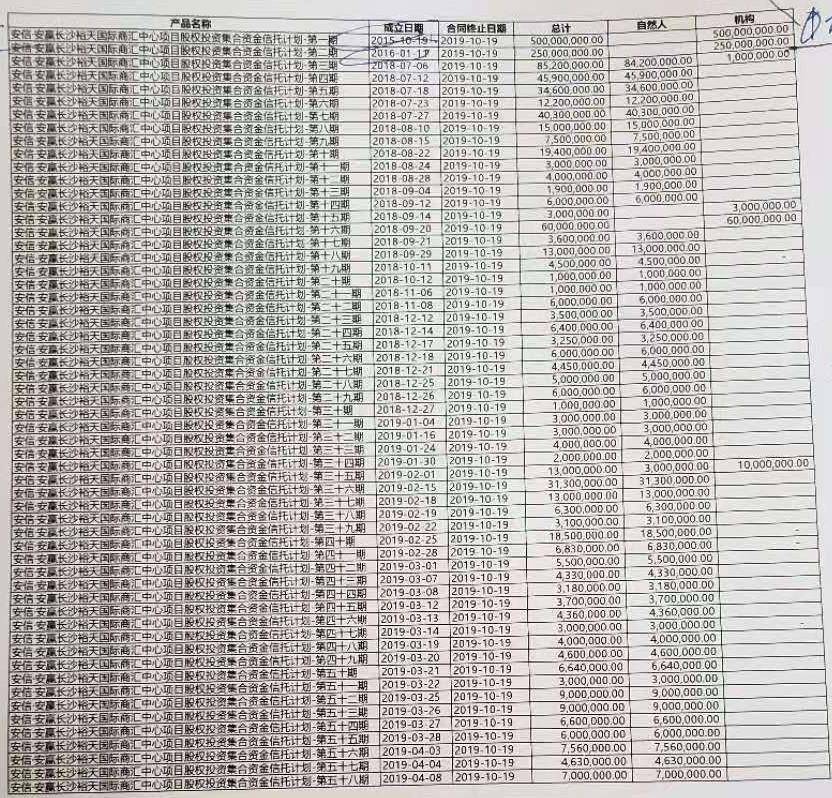 产品名称 成立日期 合同终止日期 总计 自然人 机构
安信安赢长沙裕天国际商汇中心项目股权投资集合资金信托计划-第一期 2015-10-19 2019-10-19 500,000,000.00 500,000,000.00
安信安赢长沙裕天国际商汇中心项目股权投资集合资金信托计划-第二期 2019-10-19 250,000,000.00 250,000,000.00
安信安赢长沙裕天国际商汇中心项目股权投资集合资金信托计划-第三期 2018-07-06 2019-10-19 85,200,000.00 84,200,000.00 1,000,000.00
安信安赢长沙裕天国际商汇中心项目股权投资集合资金信托计划-第四期 2018-07-12 2019-10-19 45,900,000.00 45,900,000.00
安信安赢长沙裕天国际商汇中心项目股权投资集合资金信托计划-第五期 2018-07-18 2019-10-19 34,600,000.00 34,600,000.00
安信安赢长沙裕天国际商汇中心项目股权投资集合资金信托计划-第六期 2018-07-23 2019-10-19 12,200,000.00 12,200,000.00
安信安赢长沙裕天国际商汇中心项目股权投资集合资金信托计划-第七期 2018-07-27 2019-10-19 40,300,000.00 40,300,000.00
安信安赢长沙裕天国际商汇中心项目股权投资集合资金信托计划-第八期 2018-08-10 2019-10-19 15,000,000.00 15,000,000.00
安信安赢长沙裕天国际商汇中心项目股权投资集合资金信托计划-第九期 2018-08-15 2019-10-19 7,500,000.00 7,500,000.00
安信安赢长沙裕天国际商汇中心项目股权投资集合资金信托计划-第十期 2018-08-22 2019-10-19 19,400,000.00 19,400,000.00
安信安赢长沙裕天国际商汇中心项目股权投资集合资金信托计划-第十一期 2018-08-24 2019-10-19 3,000,000.00 3,000,000.00
安信安赢长沙裕天国际商汇中心项目股权投资集合资金信托计划-第十二期 2018-08-28 2019-10-19 4,000,000.00 4,000,000.00
安信安赢长沙裕天国际商汇中心项目股权投资集合资金信托计划-第十三期 2018-09-04 2019-10-19 1,900,000.00 1,900,000.00
安信安赢长沙裕天国际商汇中心项目股权投资集合资金信托计划-第十四期 2018-09-12 2019-10-19 6,000,000.00 6,000,000.00
安信安赢长沙裕天国际商汇中心项目股权投资集合资金信托计划-第十五期 2018-09-14 2019-10-19 3,000,000.00 3,000,000.00
安信安赢长沙裕天国际商汇中心项目股权投资集合资金信托计划-第十六期 2018-09-20 2019-10-19 60,000,000.00 60,000,000.00
安信安赢长沙裕天国际商汇中心项目股权投资集合资金信托计划-第十七期 2018-09-21 2019-10-19 3,600,000.00 3,600,000.00
安信安赢长沙裕天国际商汇中心项目股权投资集合资金信托计划-第十八期 2018-09-29 2019-10-19 13,000,000.00 13,000,000.00
安信安赢长沙裕天国际商汇中心项目股权投资集合资金信托计划-第十九期 2018-10-11 2019-10-19 4,500,000.00 4,500,000.00 -
安信安赢长沙裕天国际商汇中心项目股权投资集合资金信托计划-第二十期 2018-10-12 2019-10-19 1,000,000.00 1,000,000.00
安信安赢长沙裕天国际商汇中心项目股权投资集合资金信托计划-第二十一期 2018-11-06 2019-10-19 1,000,000.00 1,000,000.00
安信安赢长沙裕天国际商汇中心项目股权投资集合资金信托计划-第二十二期 2018-11-08 2019-10-19 6,000,000.00 6,000,000.00
安信安赢长沙裕天国际商汇中心项目股权投资集合资金信托计划-第二十三期 2018-12-12 2019-10-19 3,500,000.00 3,500,000.00
安信安赢长沙裕天国际商汇中心项目股权投资集合资金信托计划-第二十四期 2018-12-14 2019-10-19 6,400,000.00 6,400,000.00
安信安赢长沙裕天国际商汇中心项目股权投资集合资金信托计划-第二十五期 2018-12-17 2019-10-19 3,250,000.00 3,250,000.00
安信安赢长沙裕天国际商汇中心项目股权投资集合资金信托计划-第二十六期 2018-12-18 2019-10-19 6,000,000.00 6,000,000.00
安信安赢长沙裕天国际商汇中心项目股权投资集合资金信托计划-第二十七期 2018-12-21 2019-10-19 4,450,000.00 4,450,000.00
安信安赢长沙裕天国际商汇中心项目股权投资集合资金信托计划-第二十八期 2018-12-25 2019-10-19 5,000,000.00 5,000,000.00
安信安赢长沙裕天国际商汇中心项目股权投资集合资金信托计划-第二十九期 2018-12-26 2019-10-19 6,000,000.00 6,000,000.00
安信安赢长沙裕天国际商汇中心项目股权投资集合资金信托计划-第三十期 2018-12-27 2019-10-19 1,000,000.00 1,000,000.00
安信安赢长沙裕天国际商汇中心项目股权投资集合资金信托计划-第三十一期 2019-01-04 2019-10-19 3,000,000.00 3,000,000.00
安信安赢长沙裕天国际商汇中心项目股权投资集合资金信托计划-第三十二期 2019-01-16 2019-10-19 3,000,000.00 3,000,000.00
安信安赢长沙裕天国际商汇中心项目股权投资集合资金信托计划-第三十三期 2019-01-24 2019-10-19 4,000,000.00 4,000,000.00
安信安赢长沙裕天国际商汇中心项目股权投资集合资金信托计划-第三十四期 2019-01-30 2019-10-19 2,000,000.00 2,000,000.00
安信安赢长沙裕天国际商汇中心项目股权投资集合资金信托计划-第三十五期 2019-02-01 2019-10-19 13,000,000.00 3,000,000.00 10,000,000.00
安信安赢长沙裕天国际商汇中心项目股权投资集合资金信托计划-第三十六期 2019-02-15 2019-10-19 31,300,000.00 31,300,000.00
安信安赢长沙裕天国际商汇中心项目股权投资集合资金信托计划-第三十七期 2019-02-18 2019-10-19 13,000,000.00 13,000,000.00
安信安赢长沙裕天国际商汇中心项目股权投资集合资金信托计划-第三十八期 2019-02-19 2019-10-19 6,300,000.00 6,300,000.00
安信安赢长沙裕天国际商汇中心项目股权投资集合资金信托计划-第三十九期 2019-02-22 2019-10-19 3,100,000.00 3,100,000.00
安信安赢长沙裕天国际商汇中心项目股权投资集合资金信托计划-第四十期 2019-02-25 2019-10-19 18,500,000.00 18,500,000.00 -
安信安赢长沙裕天国际商汇中心项目股权投资集合资金信托计划-第四十一期 2019-02-28 2019-10-19 6,830,000.00 6,830,000.00 -
安信安赢长沙裕天国际商汇中心项目股权投资集合资金信托计划-第四十二期 2019-03-01 2019-10-19 5,500,000.00 5,500,000.00
安信安赢长沙裕天国际商汇中心项目股权投资集合资金信托计划-第四十三期 2019-03-07 2019-10-19 4,330,000.00 4,330,000.00
安信安赢长沙裕天国际商汇中心项目股权投资集合资金信托计划-第四十四期 2019-03-08 2019-10-19 3,180,000.00 3,180,000.00
安信安赢长沙裕天国际商汇中心项目股权投资集合资金信托计划-第四十五期 2019-03-12 2019-10-19 3,700,000.00 3,700,000.00
安信安赢长沙裕天国际商汇中心项目股权投资集合资金信托计划-第四十六期 2019-03-13 2019-10-19 4,360,000.00 4,360,000.00
安信安赢长沙裕天国际商汇中心项目股权投资集合资金信托计划-第四十七期 2019-03-14 2019-10-19 3,000,000.00 3,000,000.00 -
安信安赢长沙裕天国际商汇中心项目股权投资集合资金信托计划-第四十八期 2019-03-19 2019-10-19 4,000,000.00 4,000,000.00
安信安赢长沙裕天国际商汇中心项目股权投资集合资金信托计划-第四十九期 2019-03-20 2019-10-19 4,600,000.00 4,600,000.00
安信安赢长沙裕天国际商汇中心项目股权投资集合资金信托计划-第五十期 2019-03-21 2019-10-19 6,640,000.00 6,640,000.00
安信安赢长沙裕天国际商汇中心项目股权投资集合资金信托计划-第五十一期 2019-03-22 2019-10-19 3,000,000.00 3,000,000.00
安信安赢长沙裕天国际商汇中心项目股权投资集合资金信托计划-第五十二期 2019-03-25 2019-10-19 9,000,000.00 9,000,000.00
安信安赢长沙裕天国际商汇中心项目股权投资集合资金信托计划-第五十三期 2019-03-26 2019-10-19 9,000,000.00 9,000,000.00
安信安赢长沙裕天国际商汇中心项目股权投资集合资金信托计划-第五十四期 2019-03-27 2019-10-19 6,600,000.00 6,600,000.00
安信安赢长沙裕天国际商汇中心项目股权投资集合资金信托计划-第五十五期 2019-03-28 2019-10-19 6,000,000.00 6,000,000.00
安信安赢长沙裕天国际商汇中心项目股权投资集合资金信托计划-第五十六期 2019-04-03 2019-10-19 7,560,000.00 7,560,000.00
安信安赢长沙裕天国际商汇中心项目股权投资集合资金信托计划-第五十七期 2019-04-04 2019-10-19 4,630,000.00 4,630,000.00
安信安赢长沙裕天国际商汇中心项目股权投资集合资金信托计划-第五十八期 2019-04-08 2019-10-19 7,000,000.00 7,000,000.00